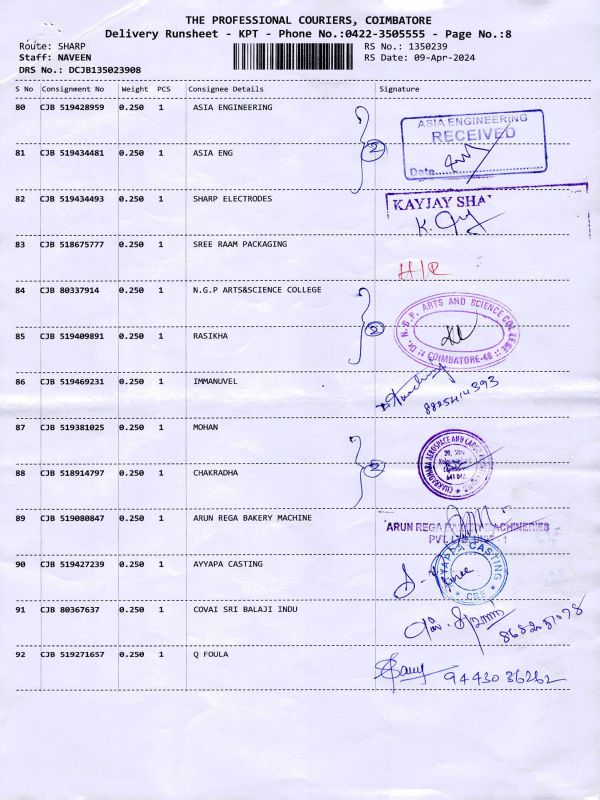 THE PROFESSIONAL COURIERS, COIMBATORE
Delivery Runsheet - KPT - Phone No.:0422-3505555 - Page No.:8
Route: SHARP RS No.: 1350239
Staff: NAVEEN RS Date: 09-Apr-2024
DRS No.: DCJB135023908
S No Consignment No Weight PCS Consignee Details Signature
80 CJB 519428959 0.250 1 ASIA ENGINEERING
ASIA ENGINEERING
RECEIVED
Date
2
81 CJB 519434481 0.250 1 ASIA ENG
82 CJB 519434493 0.250 1 SHARP ELECTRODES
KAYJAY SHA
83 CJB 518675777 0.250 1 SREE RAAM PACKAGING
H/R
84 CJB 80337914 0.250 1 N.G.P ARTS&SCIENCE COLLEGE
Dr. N.G.P. ARTS AND SCIENCE COLLEGE
COIMBATORE-48
2
85 CJB 519409891 0.250 1 RASIKHA
86 CJB 519469231 0.250 1 IMMANUVEL
8825414393
87 CJB 519381025 0.250 1 MOHAN
2
88 CJB 518914797 0.250 1 CHAKRADHA
89 CJB 519080847 0.250 1 ARUN REGA BAKERY MACHINE
ARUN REGA MACHINERIES
PVT. LTD.
90 CJB 519427239 0.250 1 AYYAPA CASTING
AYYAPPA CASTING
CBE
91 CJB 80367637 0.250 1 COVAI SRI BALAJI INDU
8682051078
92 CJB 519271657 0.250 1 Q FOULA
9443036262